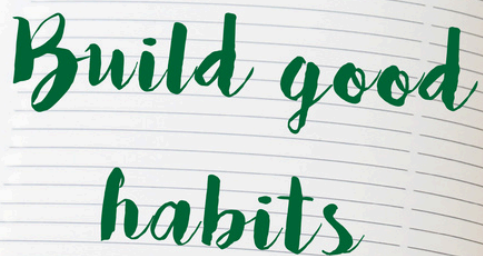 Build good
habits